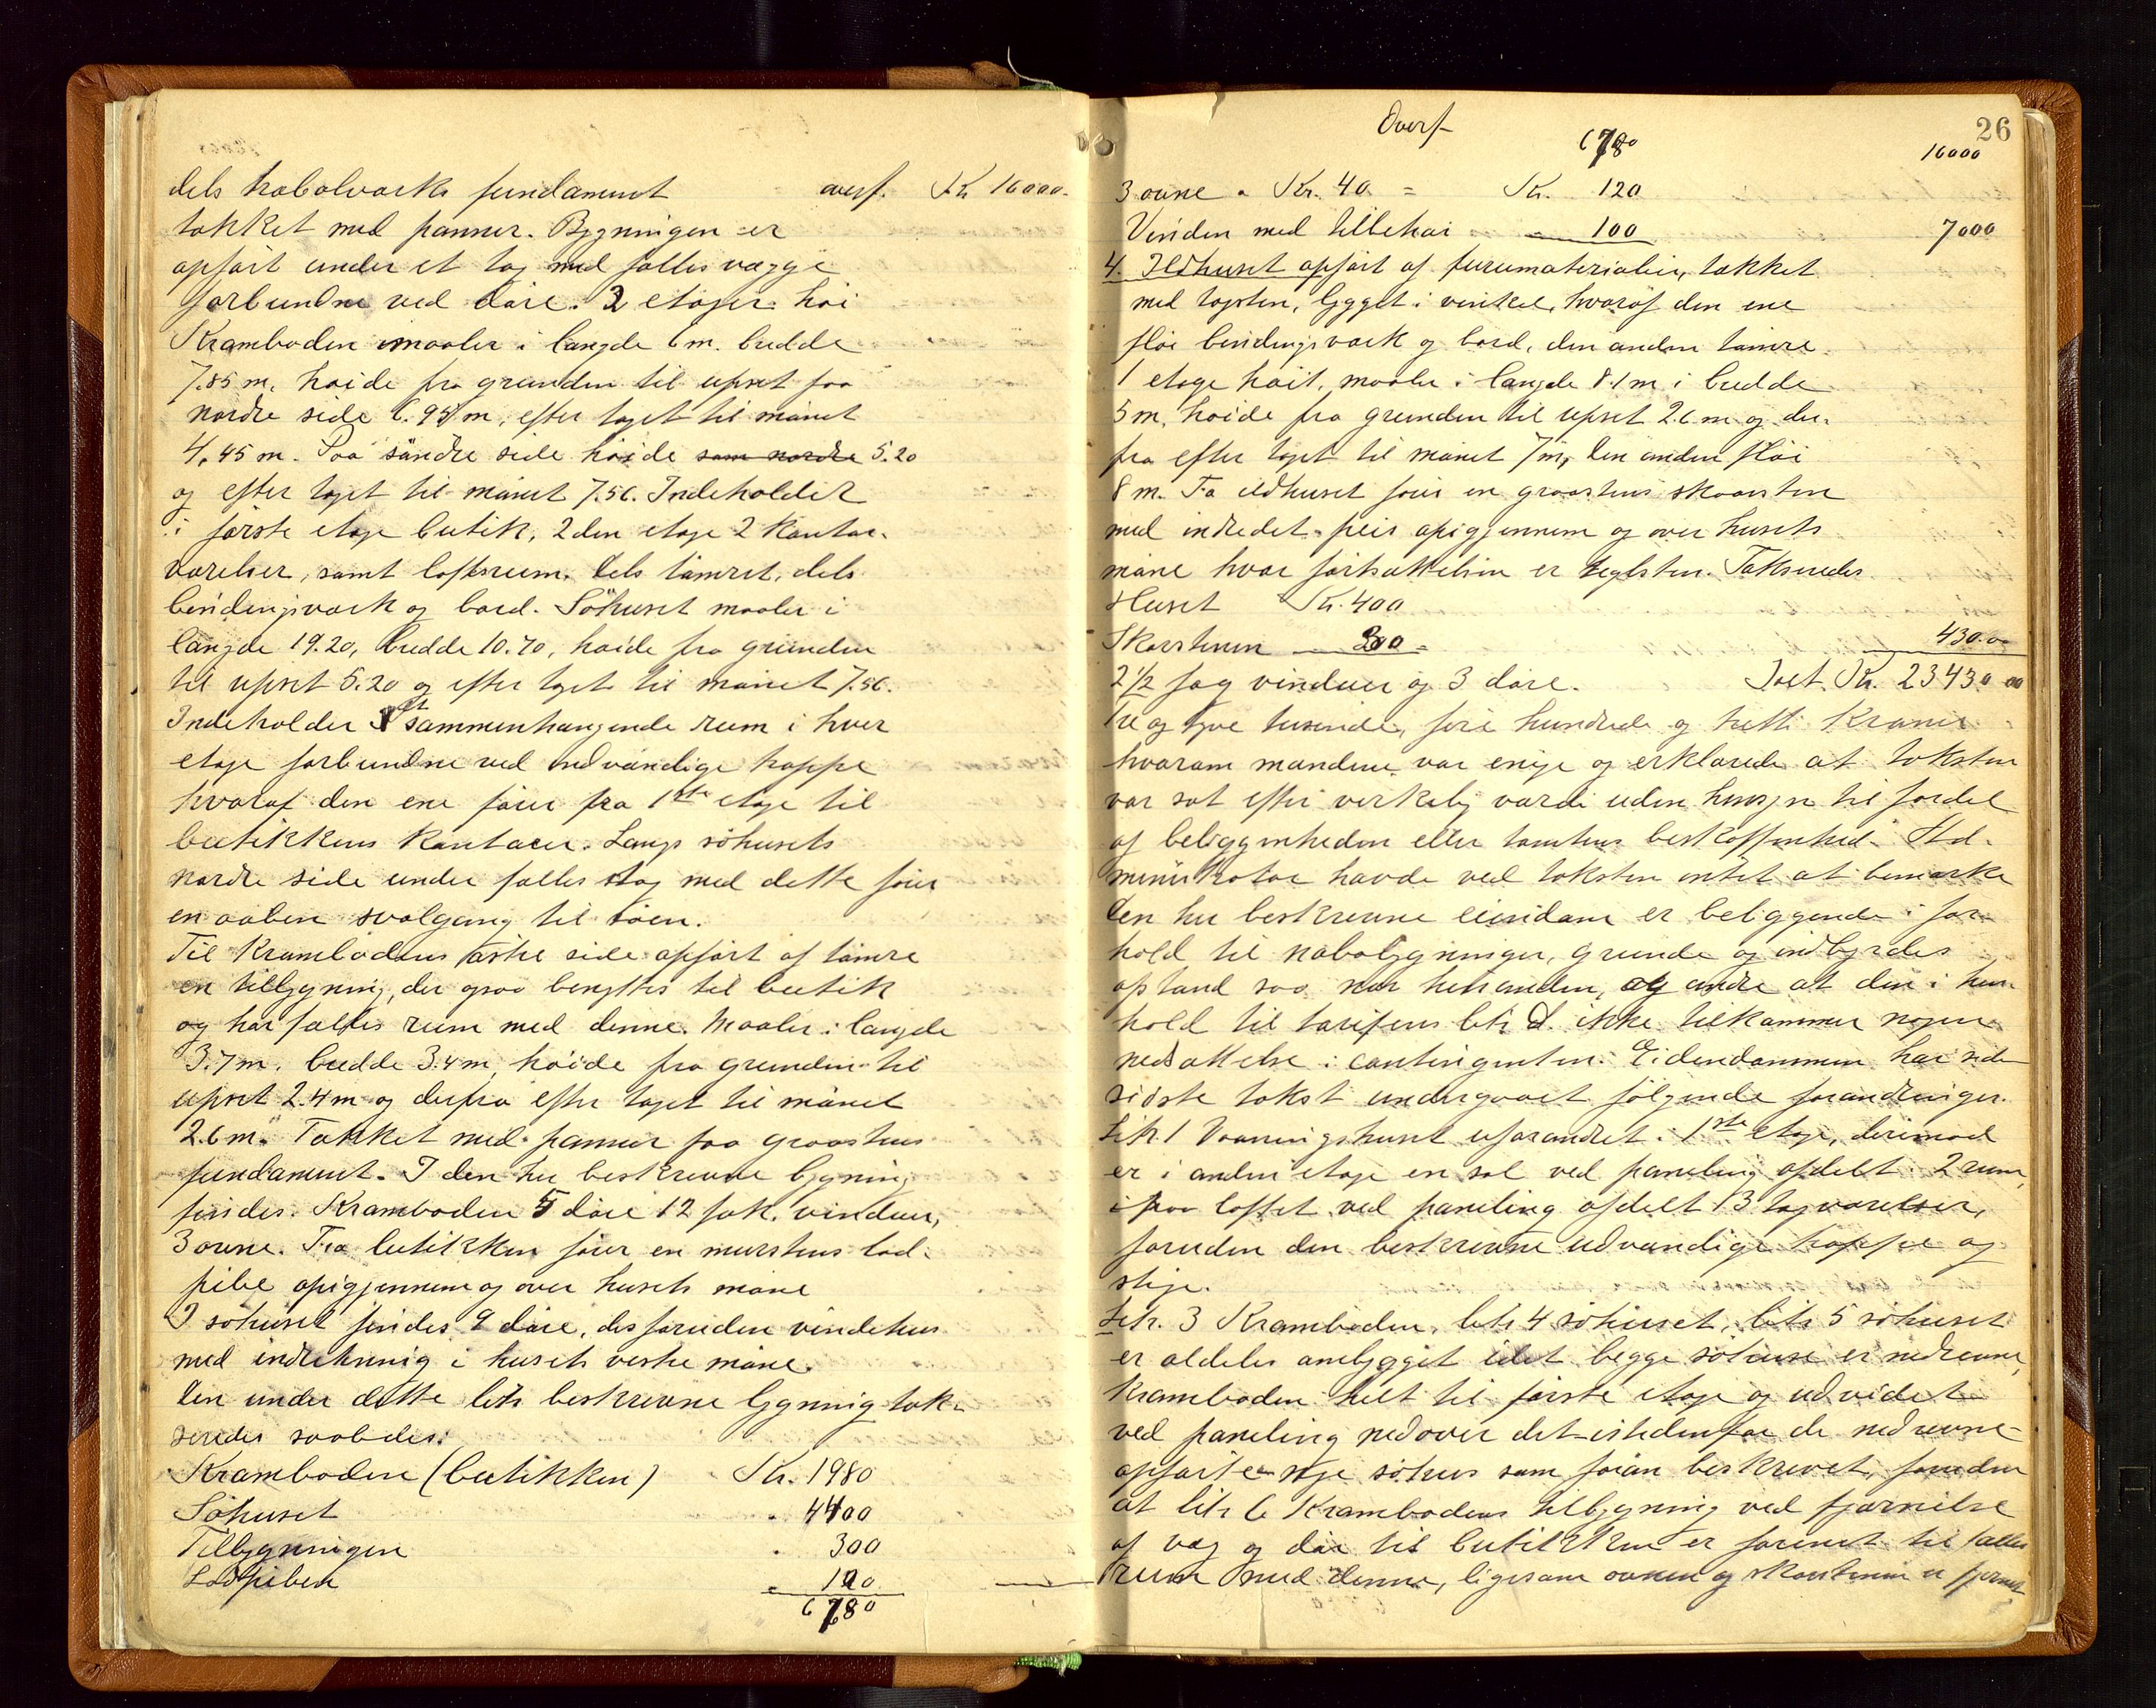 dels trebolverks fundament overf. Kr 16000.-
tækket med panner. Bygningen er
opført under et tag med fælles vægge
forbundne ved døre. 2 etager høi
Kramboden maaler i længde 6 m. bredde
7.85 m, høide fra grunden til upset paa
nordre side 6.95 m, efter taget til mønet
4,45 m. Paa søndre side høide som nordre 5.20
og efter taget til mønet 7.56. Indeholder
i første etage butik, 2den etage 2 kontor-
værelser, samt loftsrum. Dels tømret, dels
bindingsværk og bord. Söhuset maaler i
længde 19.20, bredde 10.70, høide fra grunden
til upset 5.20 og efter taget til mønet 7.56.
Indeholder et sammenhængende rum i hver
etage forbundne ved indvændige trappe
hvoraf den ene fører fra 1ste etage til
butikkens kontorer. Langs söhusets
nordre side under fælles tag med dette fører
en aaben svalgang til söen.
Til Krambodens østre side opført af tømre
en tilbygning, der ogsaa benyttes til butik
og har fælles rum med denne. Maaler i længde
3.7 m. bredde 3.4 m, høide fra grunden til
upset 2.4 m og derfra efter taget til mønet
2.6 m. Tækket med panner paa graastens
fundament. I den her beskrevne bygning
findes. Kramboden 5 døre 12 fak. vinduer,
3 ovne. Fra butikken fører en murstens lod-
pibe opigjennem og over husets møne
I söhuset findes 9 døre, desforuden vindehus
med indretning i husets vestre møne.
Den under dette litr beskrevne bygning tak-
seredes saaledes:
Kramboden (butikken) Kr. 1980
Söhuset " 4400
Tilbygningen " 300
Lodpiben " 100
6780
Overf 6780 16000
26
3 ovne a Kr. 40 = Kr. 120
Vinden med tilbehør " 100 7000
4. Ildhuset opført af furumaterialier, tækket
med tagsten, bygget i vinkel, hvoraf den ene
fløi bindingsværk og bord, den anden tømre.
1 etage høit, maaler i længde 8.1 m i bredde
5 m, høide fra grunden til upset 2.6 m og der-
fra efter taget til mønet 7 m, den anden fløi
8 m. Fra ildhuset fører en graastens skorsten
med indredet peis opigjennem og over husets
møne hvor fortsættelsen er teglsten. Takseredes
Huset Kr. 400
Skorstenen 30 = 430.00
2 1/2 fag vinduer og 3 døre. Ialt. Kr. 23430 00
Tre og tyve tusinde, fire hundrede og tretti Kroner
hvorom mændene var enige og erklærede at taksten
var sat efter virkelig værdi uden hensyn til fordel
af beliggenheden eller tomtens beskaffenhed. Ad-
ministrator havde ved taksten intet at bemærke
Den her beskrevne eiendom er beliggende i for-
hold til nabobygninger, grunde og indbyrdes
afstand saa nær hinanden, og andre at den i hen-
hold til tarifens litr d. ikke tilkommer nogen
nedsættelse i contingenten. Eidendommen har siden
sidste takst undergaaet følgende forandringer.
Litr. 1 Vaaningshuset uforandret i 1ste etage, derimod
er i anden etage en sal ved paneling afdelt i 2 rum,
paa loftet ved paneling afdelt 3 tagværelser,
foruden den beskrevne udvendige trappe og
stige.
Litr. 3 Kramboden, litr 4 söhuset, litr 5 söhuset
er aldeles ombygget idet begge söhuse er nedrevne,
Kramboden helt til første etage og udvidet
ved paneling nedover det istedenfor de nedrevne
opført et nye söhus som foran beskrevet, foruden
at litr 6 Krambodens tilbygning ved fjærnelse
af væg og dør til butikken er forenet til fælles
rum med denne, ligesom ovnen og skorstenen er fjernet